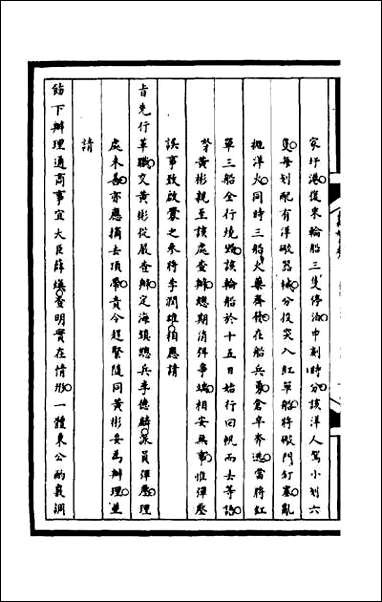 家圩港復來輪船三隻停泊申刻時分該洋人駕小划六
隻每划配有洋礮器械分投突入紅單船將礮門釘塞亂
拋洋火同時三船火藥齊發在船兵勇倉卒奔逃當將紅
單三船全行燒燬該輪船於十五日始行回帆而去等語
黃彬親至該處查辦總期消弭事端相安無事惟彈壓
誤事致啟釁之參將李潤雄相應請
旨先行革職交黃彬從嚴查辦定海鎮總兵李德麟派員彈壓理
處未善亦應摘去頂帶責令趕緊隨同黃彬妥為辦理並
請
飭下辦理通商事宜大臣薛煥查明實在情形一體秉公酌議調